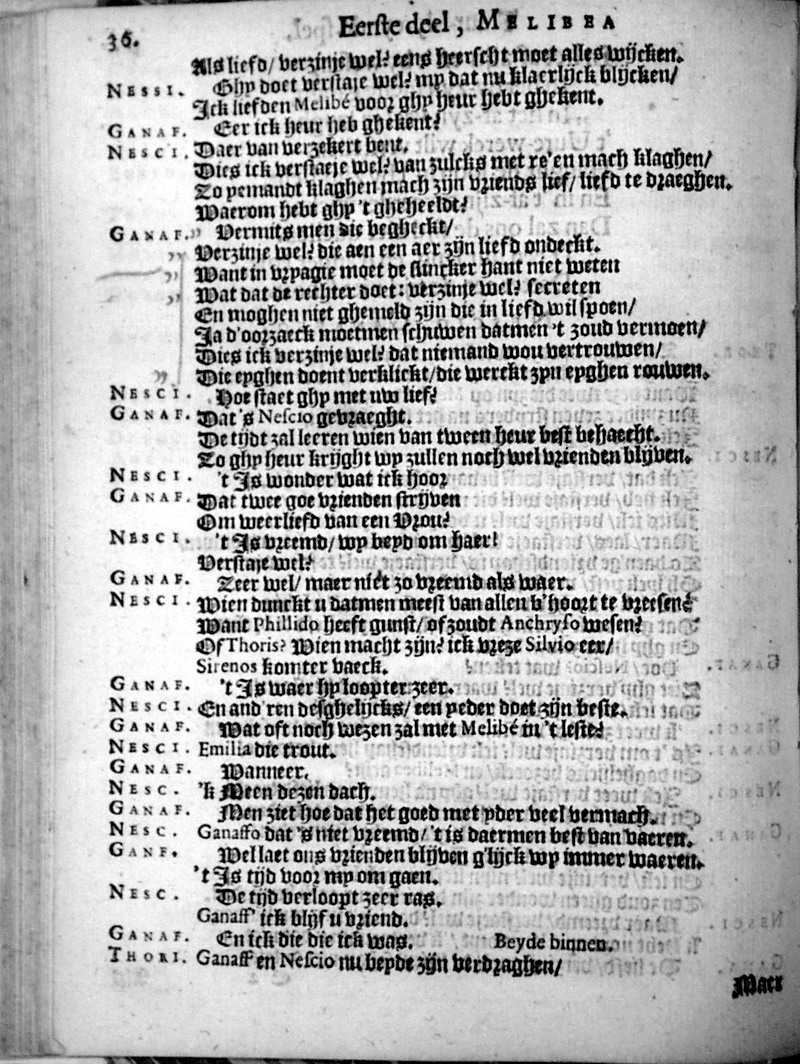 36.
Eerste deel, MELIBEA
Als liefd/ verzinje wel? eens heerscht moet alles wijcken.
NESSI. Ghy doet verstaje wel? my dat nu klaerlijck blijcken/
Ick liefden Melibé voor ghy heur hebt ghekent.
GANAF. Eer ick heur heb ghekent?
NESCI. Daer van verzekert bent.
Dies ick verstaeje wel? van zulcks met re'en mach klaghen/
Zo yemandt klaghen mach zijn vriends lief/ liefd te draeghen.
Waerom hebt ghy 't gheheeldt?
GANAF. „ Vermits men die begheckt/
„ Verzinje wel? die aen een aer zijn liefd ondeckt.
„ Want in vrpagie moet de slincker hant niet weten
„ Wat dat de rechter doet: verzinje wel? secreten
En moghen niet ghemeld zijn die in liefd wil spoen/
Ja d'oorzaeck moetmen schuwen datmen 't zoud vermoen/
Dies ick verzinje wel? dat niemand wou vertrouwen/
„ Die eyghen doent verklickt/ die werckt zyn eyghen rouwen.
NESCI. Hoe staet ghy met uw lief?
GANAF. Dat's Nescio gevraeght.
De tijdt zal leeren wien van tween heur best behaecht.
Zo ghy heur krijght wy zullen noch wel vrienden blijven.
NESCI. 't Is wonder wat ick hoor
GANAF. Dat twee goe vrienden strijven
Om weerliefd van een Vrou?
NESCI. 't Is vreemd/ wy beyd om haer!
Verstaje wel?
GANAF. Zeer wel/ maer niet zo vreemd als waer.
NESCI. Wien dunckt u datmen meest van allen b'hoort te vreesen?
Want Phillido heeft gunst/ of zoudt Anchryso wesen?
Of Thoris? Wien macht zijn? ick vreze Silvio eer/
Sirenos komter vaeck.
GANAF. 't Is waer hy loopter zeer.
NESCI. En and'ren desghelijcks/ een yeder doet zijn beste.
GANAF. Wat oft noch wezen zal met Melibé in 't leste?
NESCI. Emilia die trout.
GANAF. Wanneer.
NESC. 'k Meen dezen dach.
GANAF. Men ziet hoe dat het goed met yder veel vermach.
NESC. Ganaffo dat 's niet vreemd/ 't is daermen best van vaeren.
GANF. Wel laet ons vrienden blijven g'lijck wy immer waeren.
't Is tijd voor my om gaen.
NESC. De tijd verloopt zeer ras.
Ganaff' ick blijf u vriend.
GANAF. En ick die die ick was. Beyde binnen.
THORI. Ganaff en Nescio nu beyde zijn verdraghen/
Maer